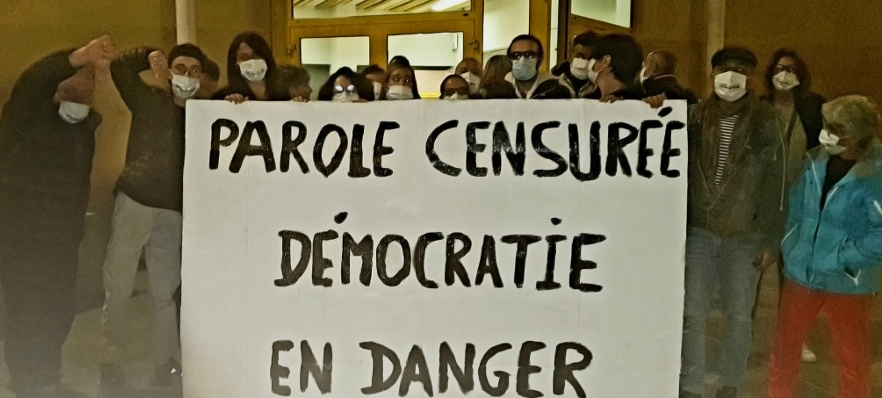 PAROLE CENSURÉE
DÉMOCRATIE
EN DANGER